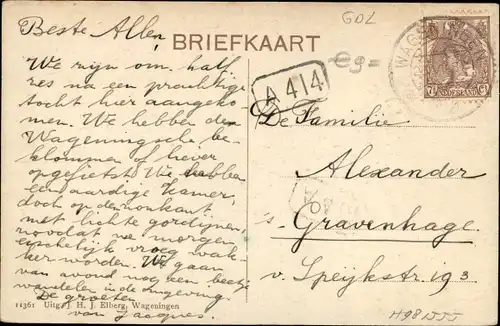 GDL
Beste Allen,
BRIEFKAART
WAGENINGEN
7½ Ct
NEDERLAND
A 414
We zijn om half
zes na een prachtige
tocht hier aangeko-
men. We hebben den
Wageningsche be-
klommen of liever
opgefietst. We hebben
een aardige kamer,
doch op den zonkant
met lichte gordijnen,
zoodat we morgen
vroeg wak-
ker worden. We gaan
van avond nog een beetje
wandelen in de omgeving.
De groeten
van Jacques.
De Familie
Alexander
's Gravenhage.
v. Speijkstr 193
11361 Uitg. J. H. J. Elberg, Wageningen